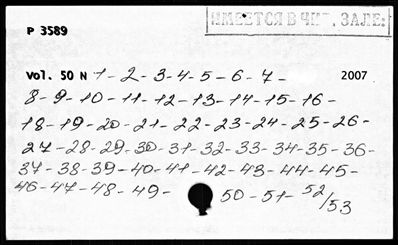 ИМЕЕТСЯ В ЧИТ. ЗАЛЕ:
P 3589
Vol. 50 N 1-2-3-4-5-6-7- 2007
8-9-10-11-12-13-14-15-16-
18-19-20-21-22-23-24-25-26-
27-28-29-30-31-32-33-34-35-36-
37-38-39-40-41-42-43-44-45-
46-47-48-49- 50-51-52/53